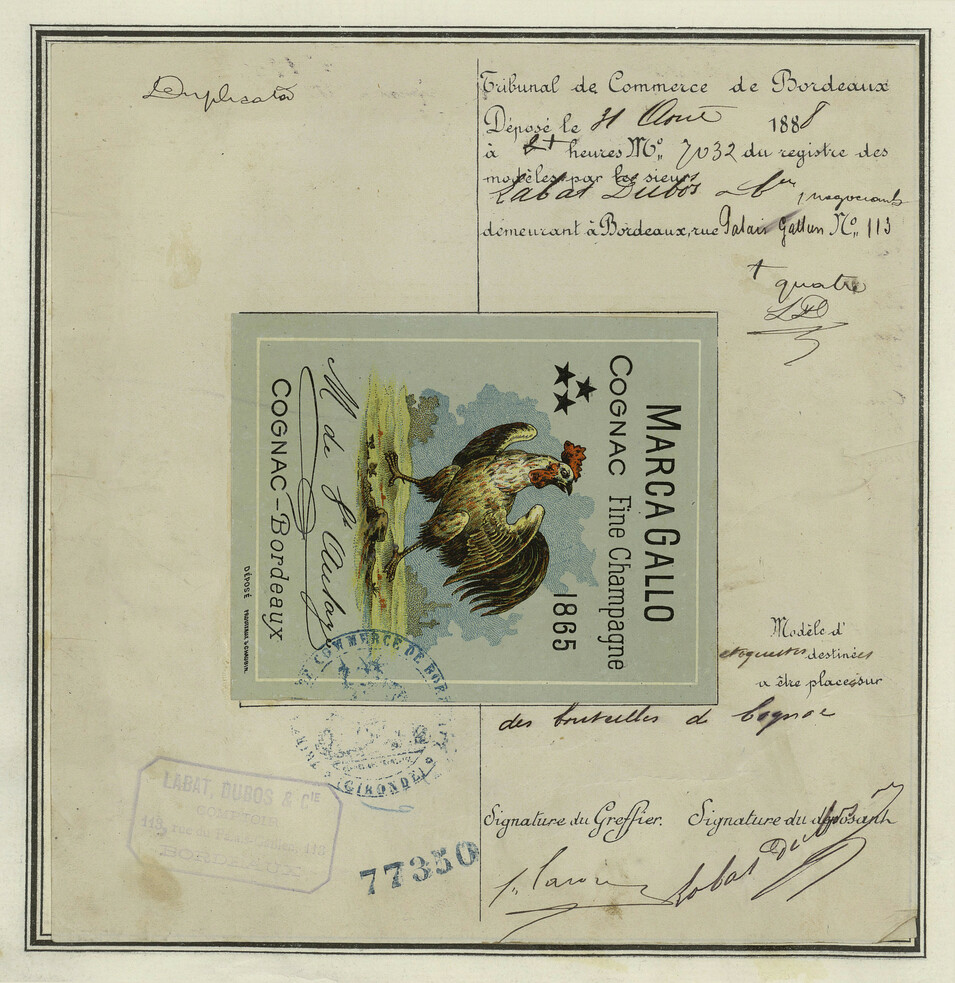 Duplicata
Tribunal de Commerce de Bordeaux
Déposé le 31 Août 1888
à 2+ heures Nº 7032 du registre des
modèles par les sieurs
Labat Dubos & Cie, négociants
demeurant à Bordeaux, rue Palais Gallien Nº 113
+ quatre
LD
MARCA GALLO
COGNAC Fine Champagne
1865
M de St Aubay
COGNAC-Bordeaux
DÉPOSÉ
Modèle d'
etiquettes destinées
a être placés sur
des bouteilles de Cognac
COMMERCE DE BOR
(GIRONDE)
LABAT, DUBOS & CIE
COMPTOIR
113, rue du Palais-Gallien, 113
BORDEAUX
77350
Signature du Greffier. Signature du déposant
Labat Dubos